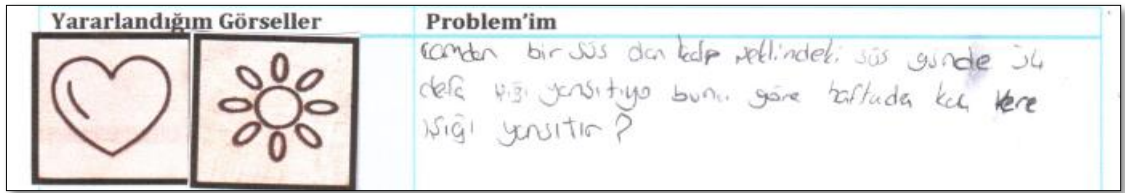 Yararlandığım Görseller
Problem'im
camdan bir süs olan kalp şeklindeki süs günde
defa ışığı yansıtıyo buna göre haftada kaç kere
ışığı yansıtır?